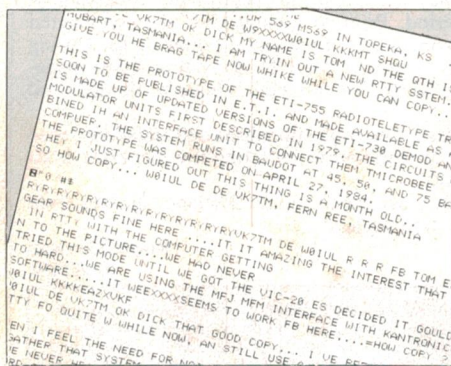 DE VK7TM ...UR 569 M569 IN TOPEKA, KS
VK7TM OK DICK MY NAME IS TOM ND THE QTH IS
HUBART, TASMANIA... I AM TRYIN OUT A NEW RTTY SSTEM.
GIVE YOU HE BRAG TAPE NOW WHIKE WHILE YOU CAN COPY...
THIS IS THE PROTOTYPE OF THE ETI-755 RADIOTELETYPE TR
SOON TO BE PUBLISHED IN E.T.I. AND MADE AVAILABLE AS A
IS MADE UP OF UPDATED VERSIONS OF THE ETI-730 DEMOD AN
MODULATOR UNITS FIRST DESCRIBED IN 1979, THE CIRCUITS
BINED IH AN INTERFACE UNIT TO CONNECT THEM TMICROBEE
COMPUER. THE SYSTEM RUNS IN BAUDOT AT 45. 50, AND 75 BA
THE PROTOTYPE WAS COMPETED ON APRIL 27, 1984.
HEY I JUST FIGURED OUT THIS THING IS A MONTH OLD..
SO HOW COPY... W0IUL DE DE VK7TM, FERN REE, TASMANIA
"0 ##
RYRYRYRYRYRYRYRYRYRYRYRYRYUK7TM DE W0IUL R R R FB TOM ES
GEAR SOUNDS FINE HERE ....IT IT AMAZING THE INTEREST THAT
IN RTT, WITH THE COMPUTER GETTING
N TO THE PICTURE....WE HAD NEVER
TRIED THIS MODE UNTIL WE GOT THE VIC-20 ES DECIDED IT GOULD
TO HARD...WE ARE USING THE MFJ MFM INTERFACE WITH KANTRONIC
SOFTWARE.....IT WEEXXXXSEEMS TO WORK FB HERE....=HOW COPY ?
W0IUL KKKKEAZXUKF
W0IUL DE VK7TM OK DICK THAT GOOD COPY... I VE
TTY FO QUITE W WHILE NOW, AN STILL USE
EN I FEEL THE NEED FOR
GATHER THAT SYSTEM
VE NEVER